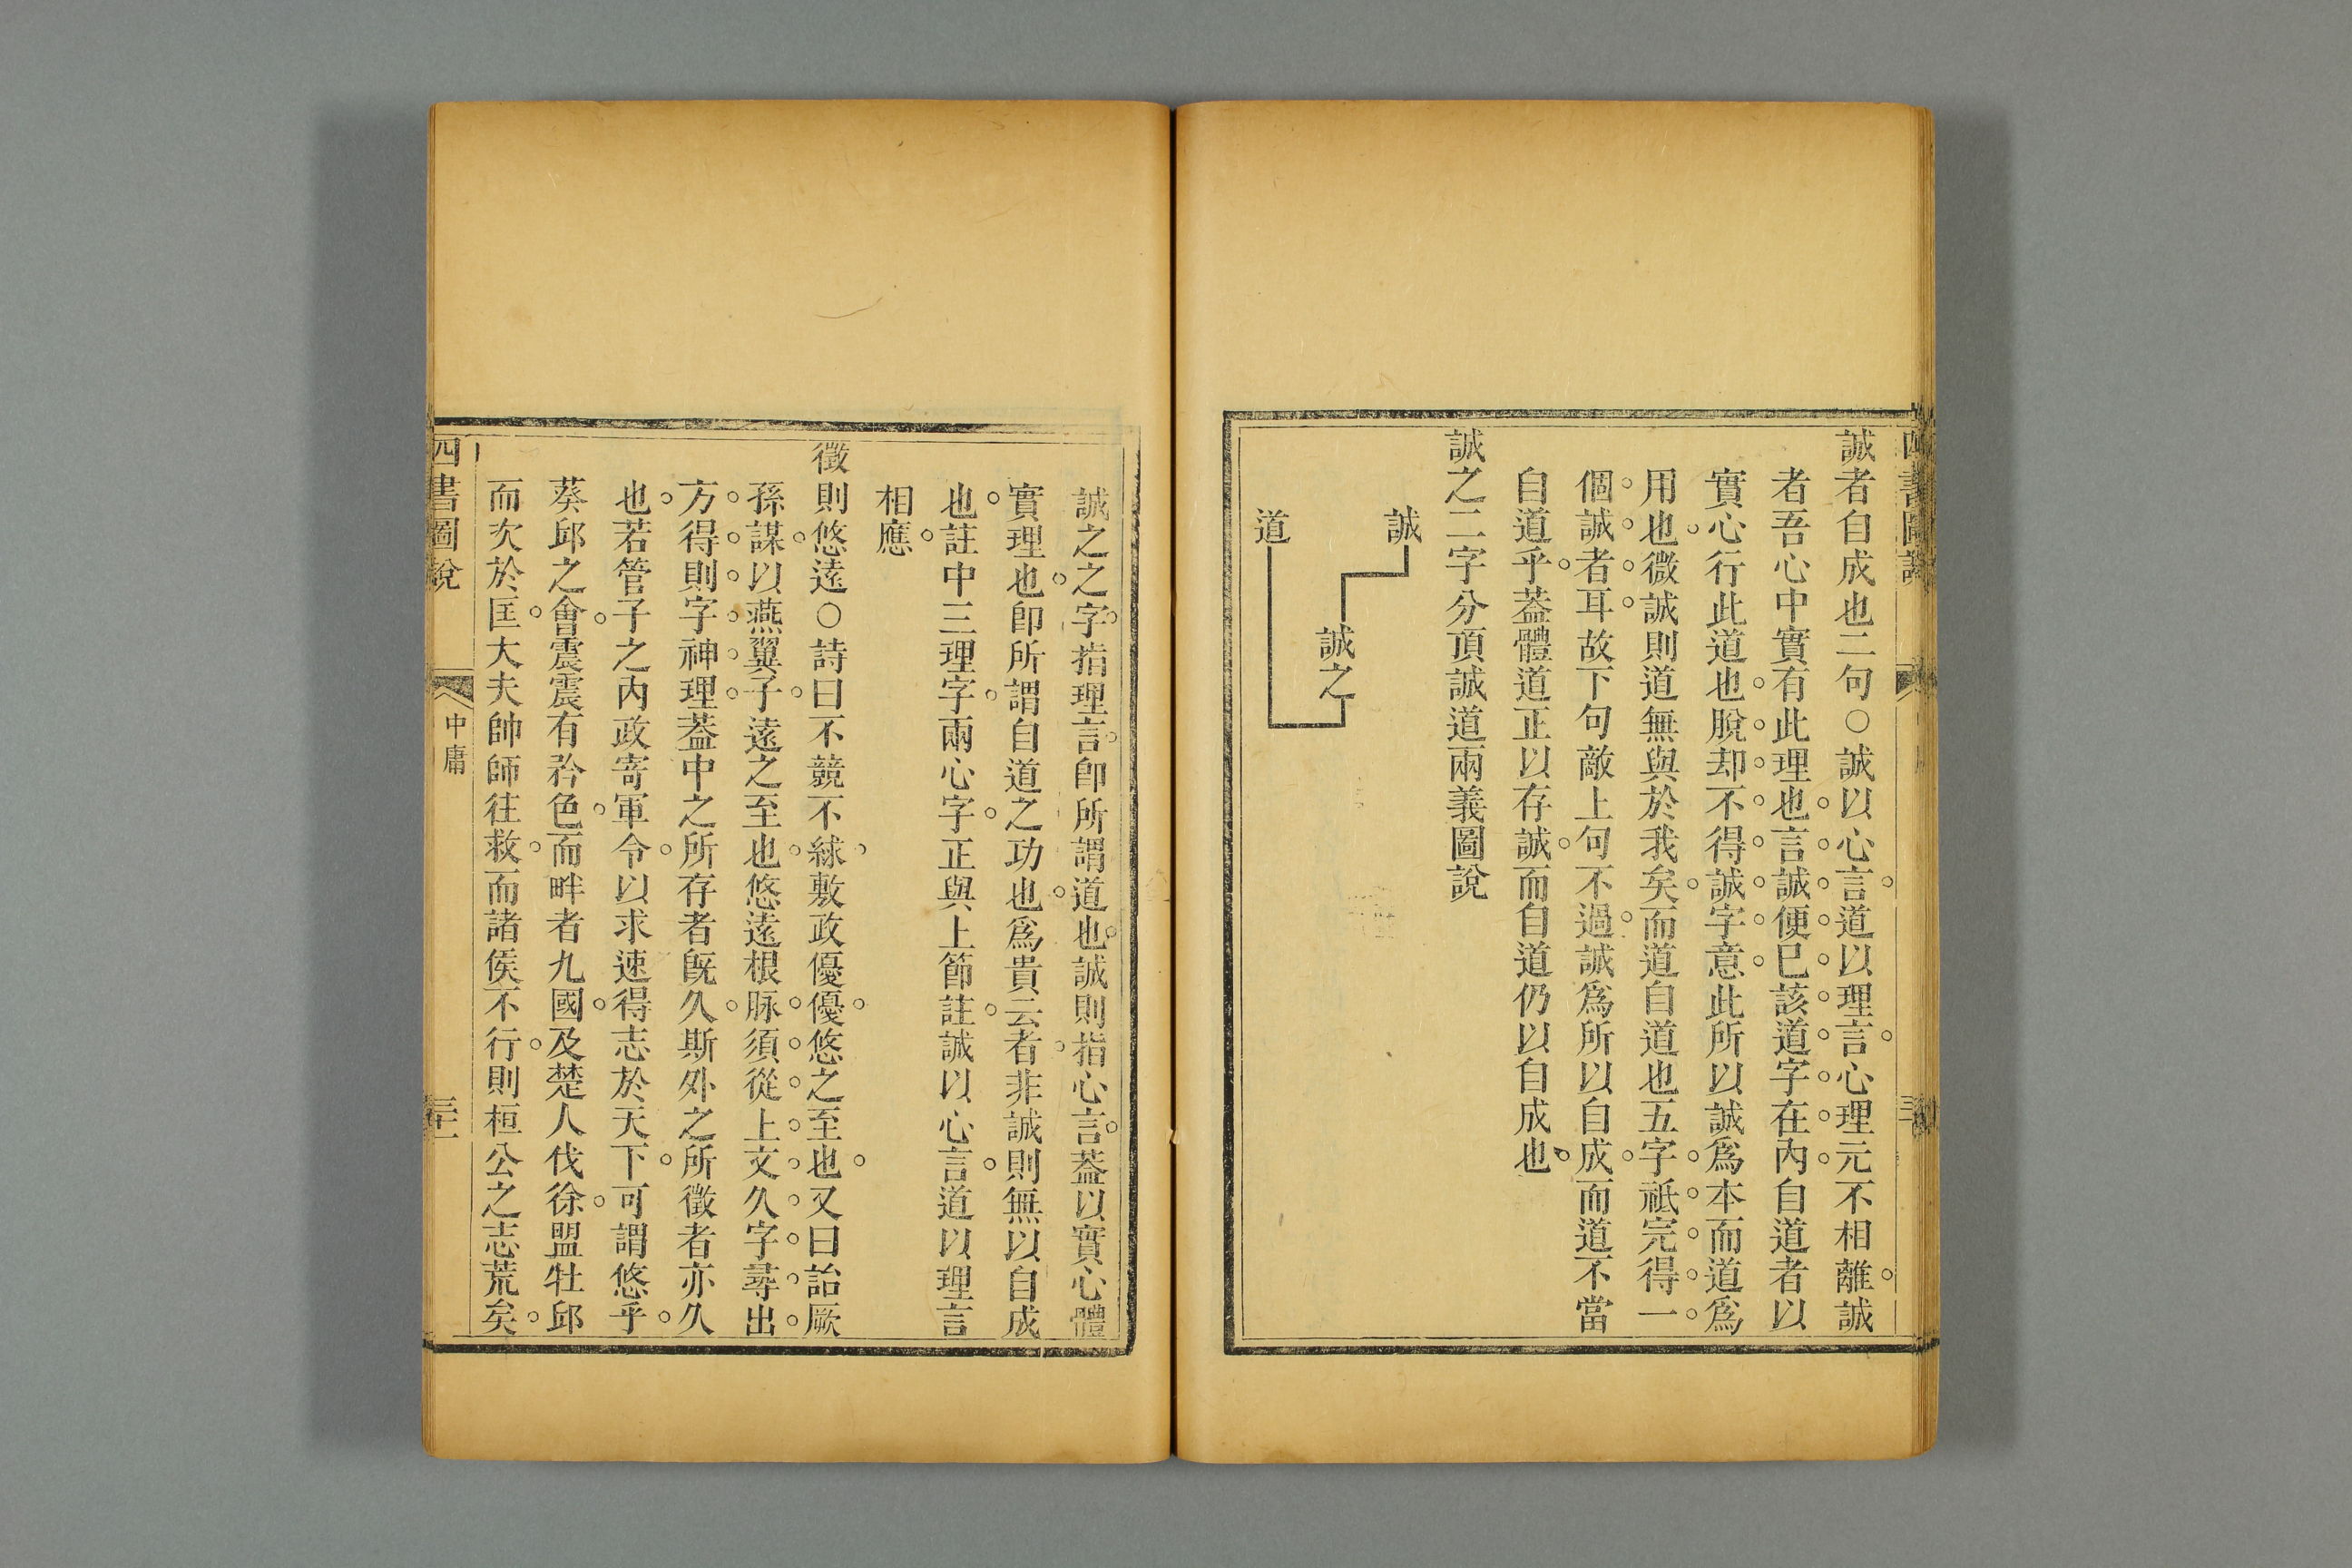 誠者自成也二句○誠以心言道以理言心理元不相離誠
者吾心中實有此理也言誠便已該道字在內自道者以
實心行此道也脫却不得誠字意此所以誠爲本而道爲
用也微誠則道無與於我矣而道自道也五字祗完得一
個誠者耳故下句敵上句不過誠爲所以自成而道不當
自道乎葢體道正以存誠而自道仍以自成也
誠之二字分頂誠道兩義圖說
誠
誠之
道
誠之之字指理言卽所謂道也誠則指心言葢以實心體
實理也卽所謂自道之功也爲貴云者非誠則無以自成
也註中三理字兩心字正與上節註誠以心言道以理言
相應
徵則悠遠○詩曰不競不絿敷政優優悠之至也又曰詒厥
孫謀以燕翼子遠之至也悠遠根脉須從上文久字尋出
方得則字神理葢中之所存者旣久斯外之所徵者亦久
也若管子之內政寄軍令以求速得志於天下可謂悠乎
葵邱之會震震有矜色而畔者九國及楚人伐徐盟牡邱
而次於匡大夫帥師往救而諸侯不行則桓公之志荒矣
四書圖說
中庸